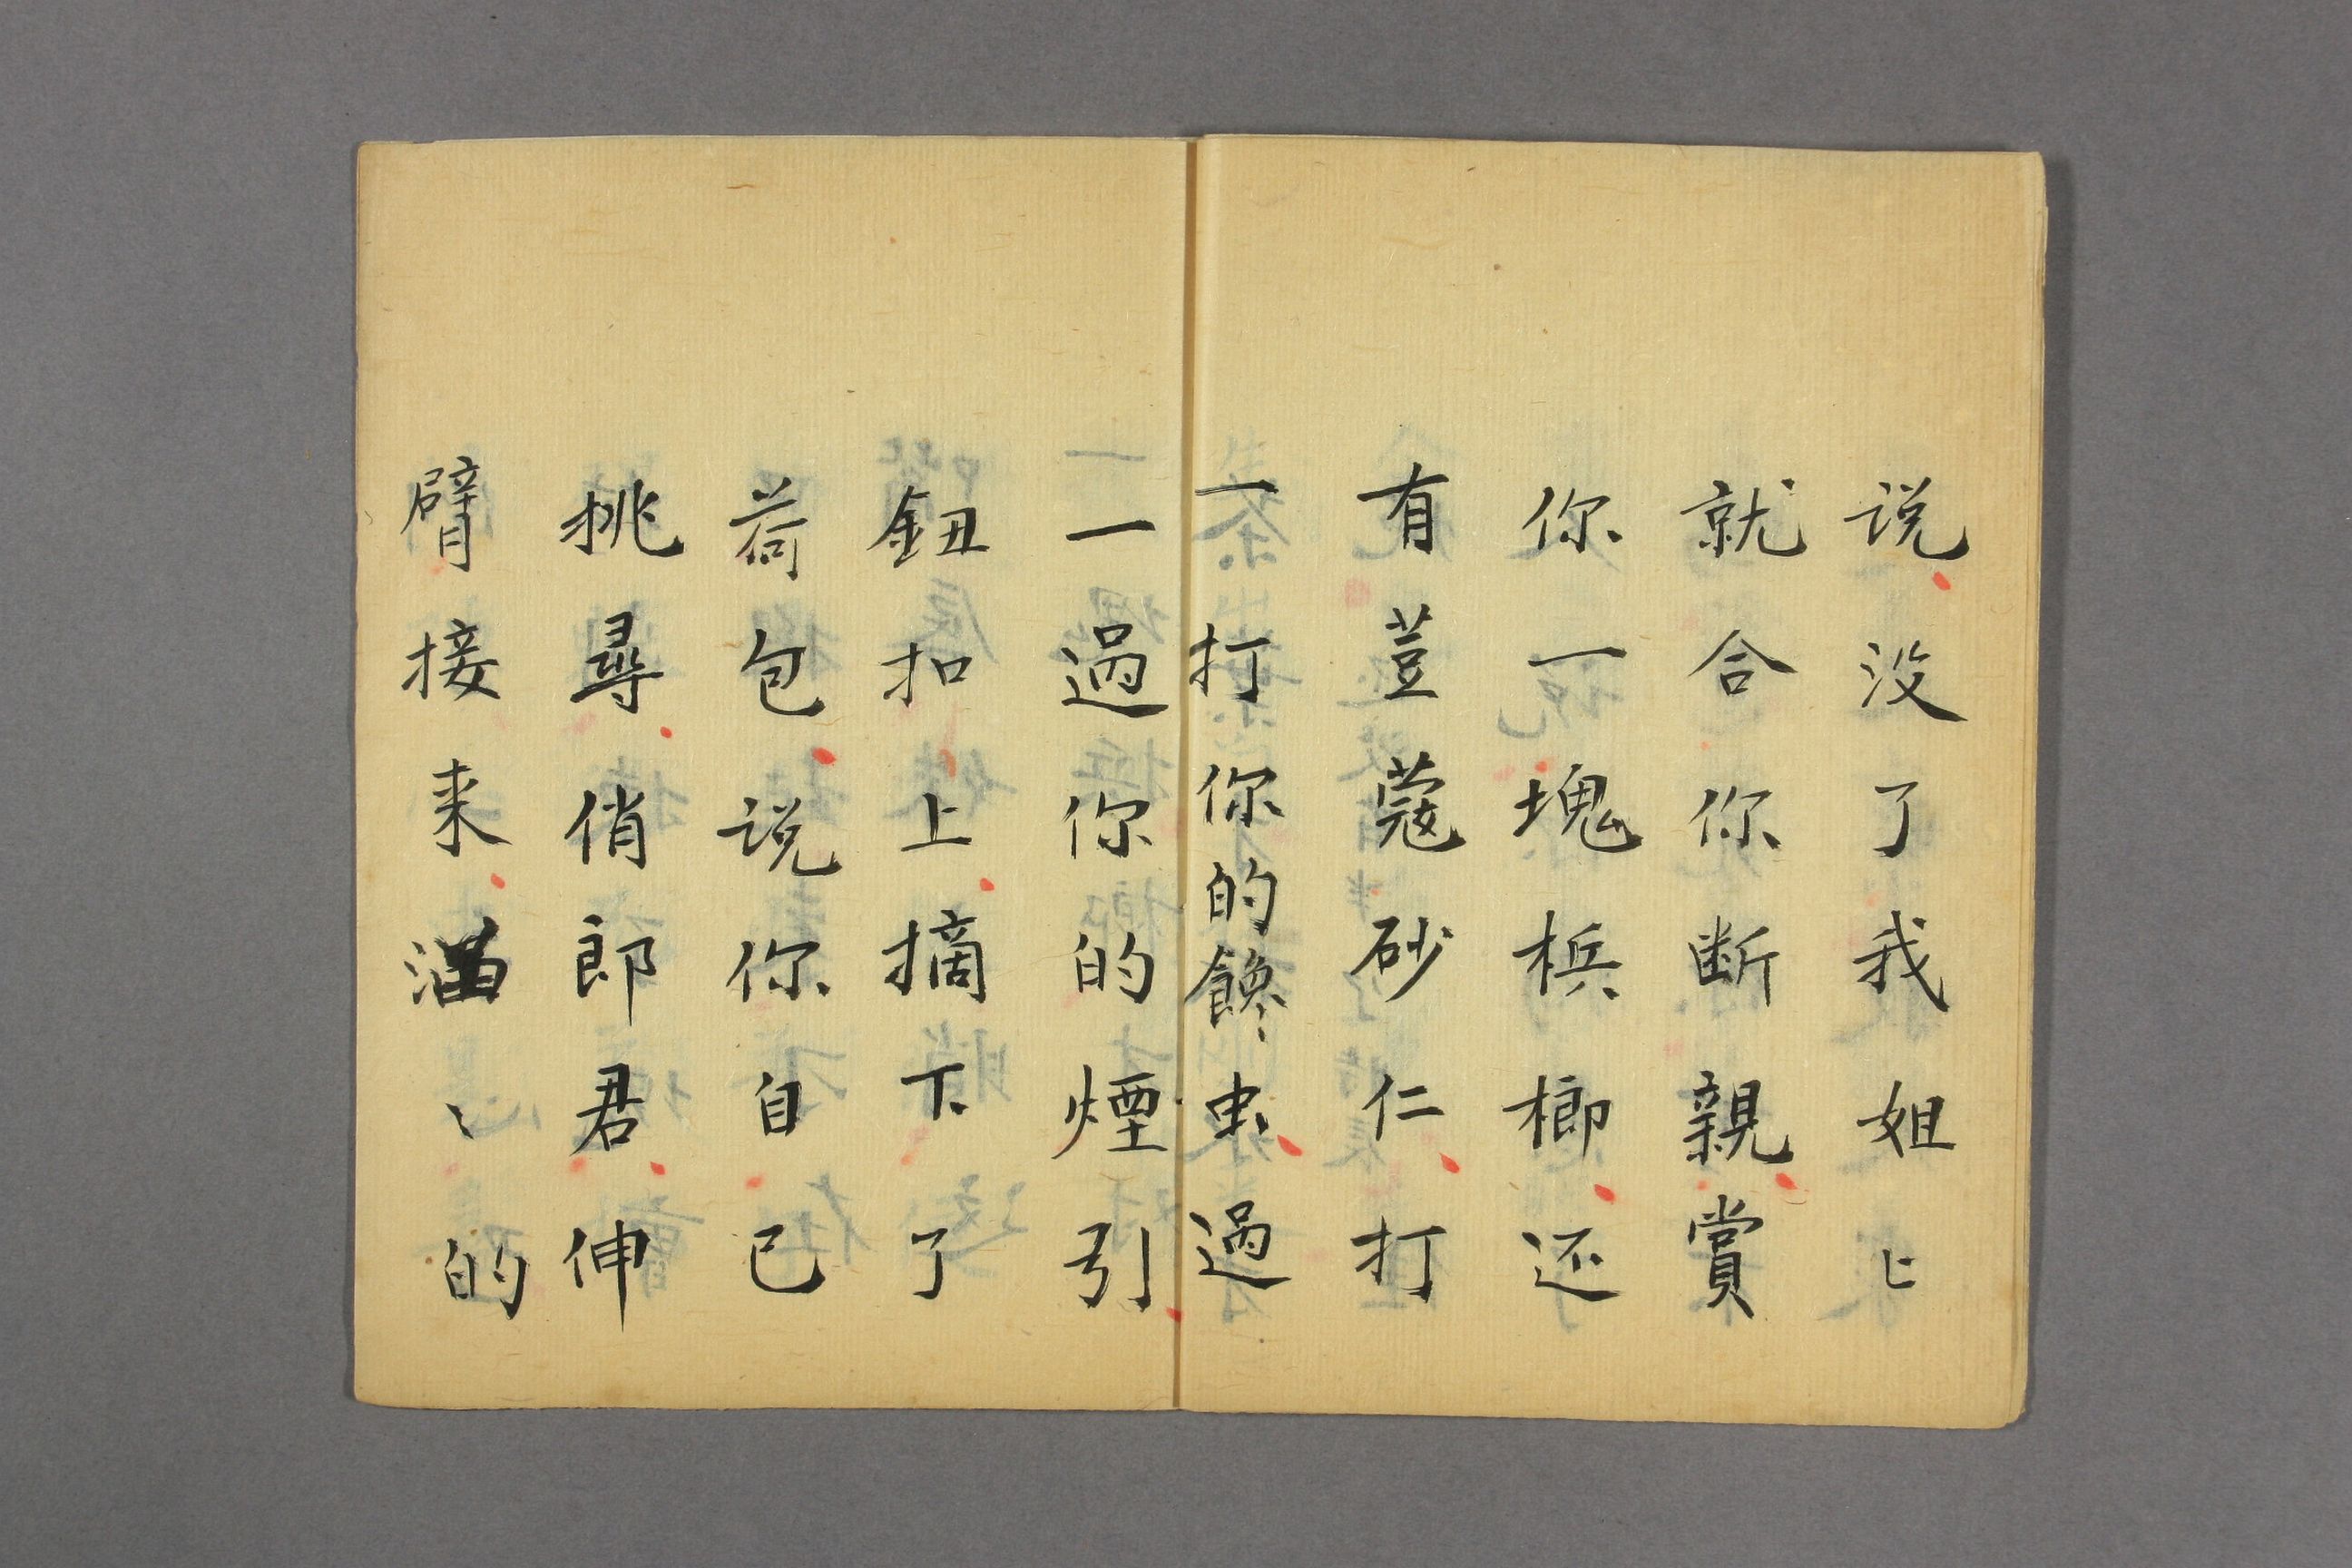 说没了我姐〻
就合你断親賞
你一塊梹榔还
有荳蔻砂仁打
一打你的饞虫過
一過你的煙引
鈕扣上摘下了
荷包说你自己
挑尋俏郎君伸
臂接来满〻的